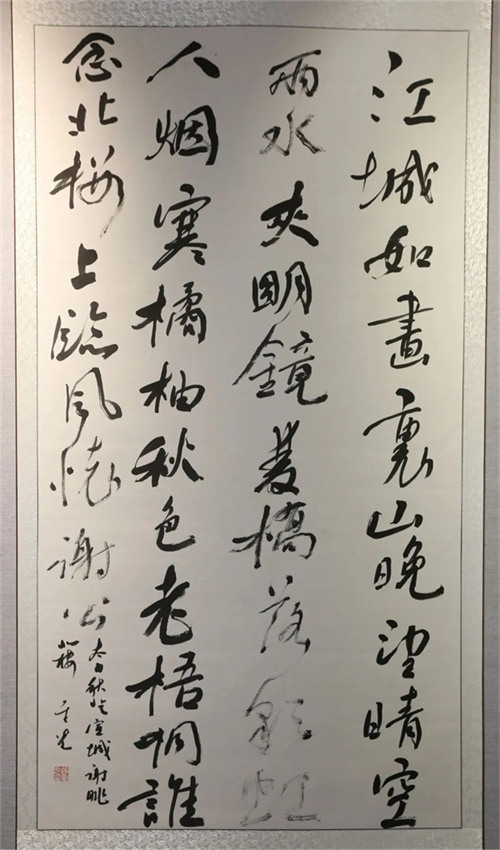 江城如畫裏山晚望晴空
兩水夾明鏡雙橋落彩虹
人烟寒橘柚秋色老梧桐誰
念北樓上臨風懷謝公
太白秋登宣城謝眺
北樓